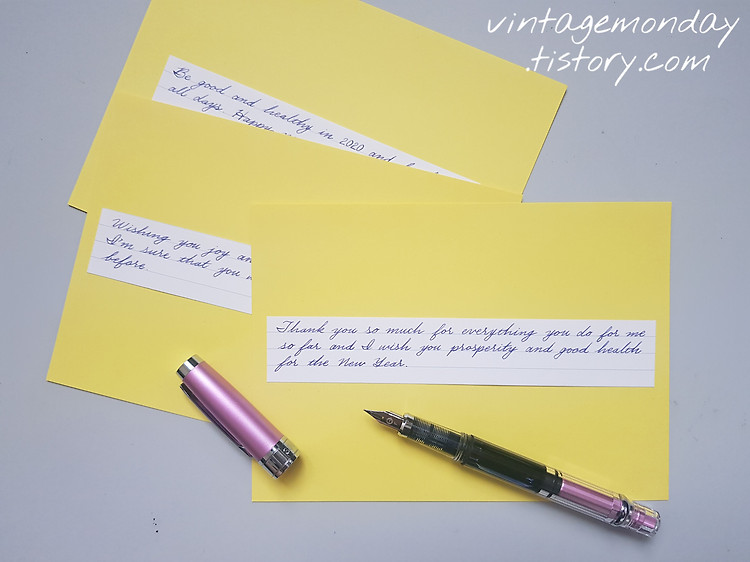 vintagemonday
.tistory.com
Be good and healthy in 2020 and
all days. Happy
Wishing you joy an
I'm sure that you
before.
Thank you so much for everything you do for me
so far and I wish you prosperity and good health
for the New Year.